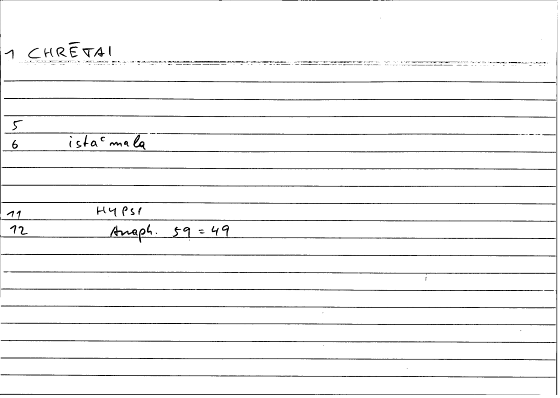 1 CHRĒTAI
5
6 istaʿmala
11 HYPSI
12 Anaph. 59 = 49